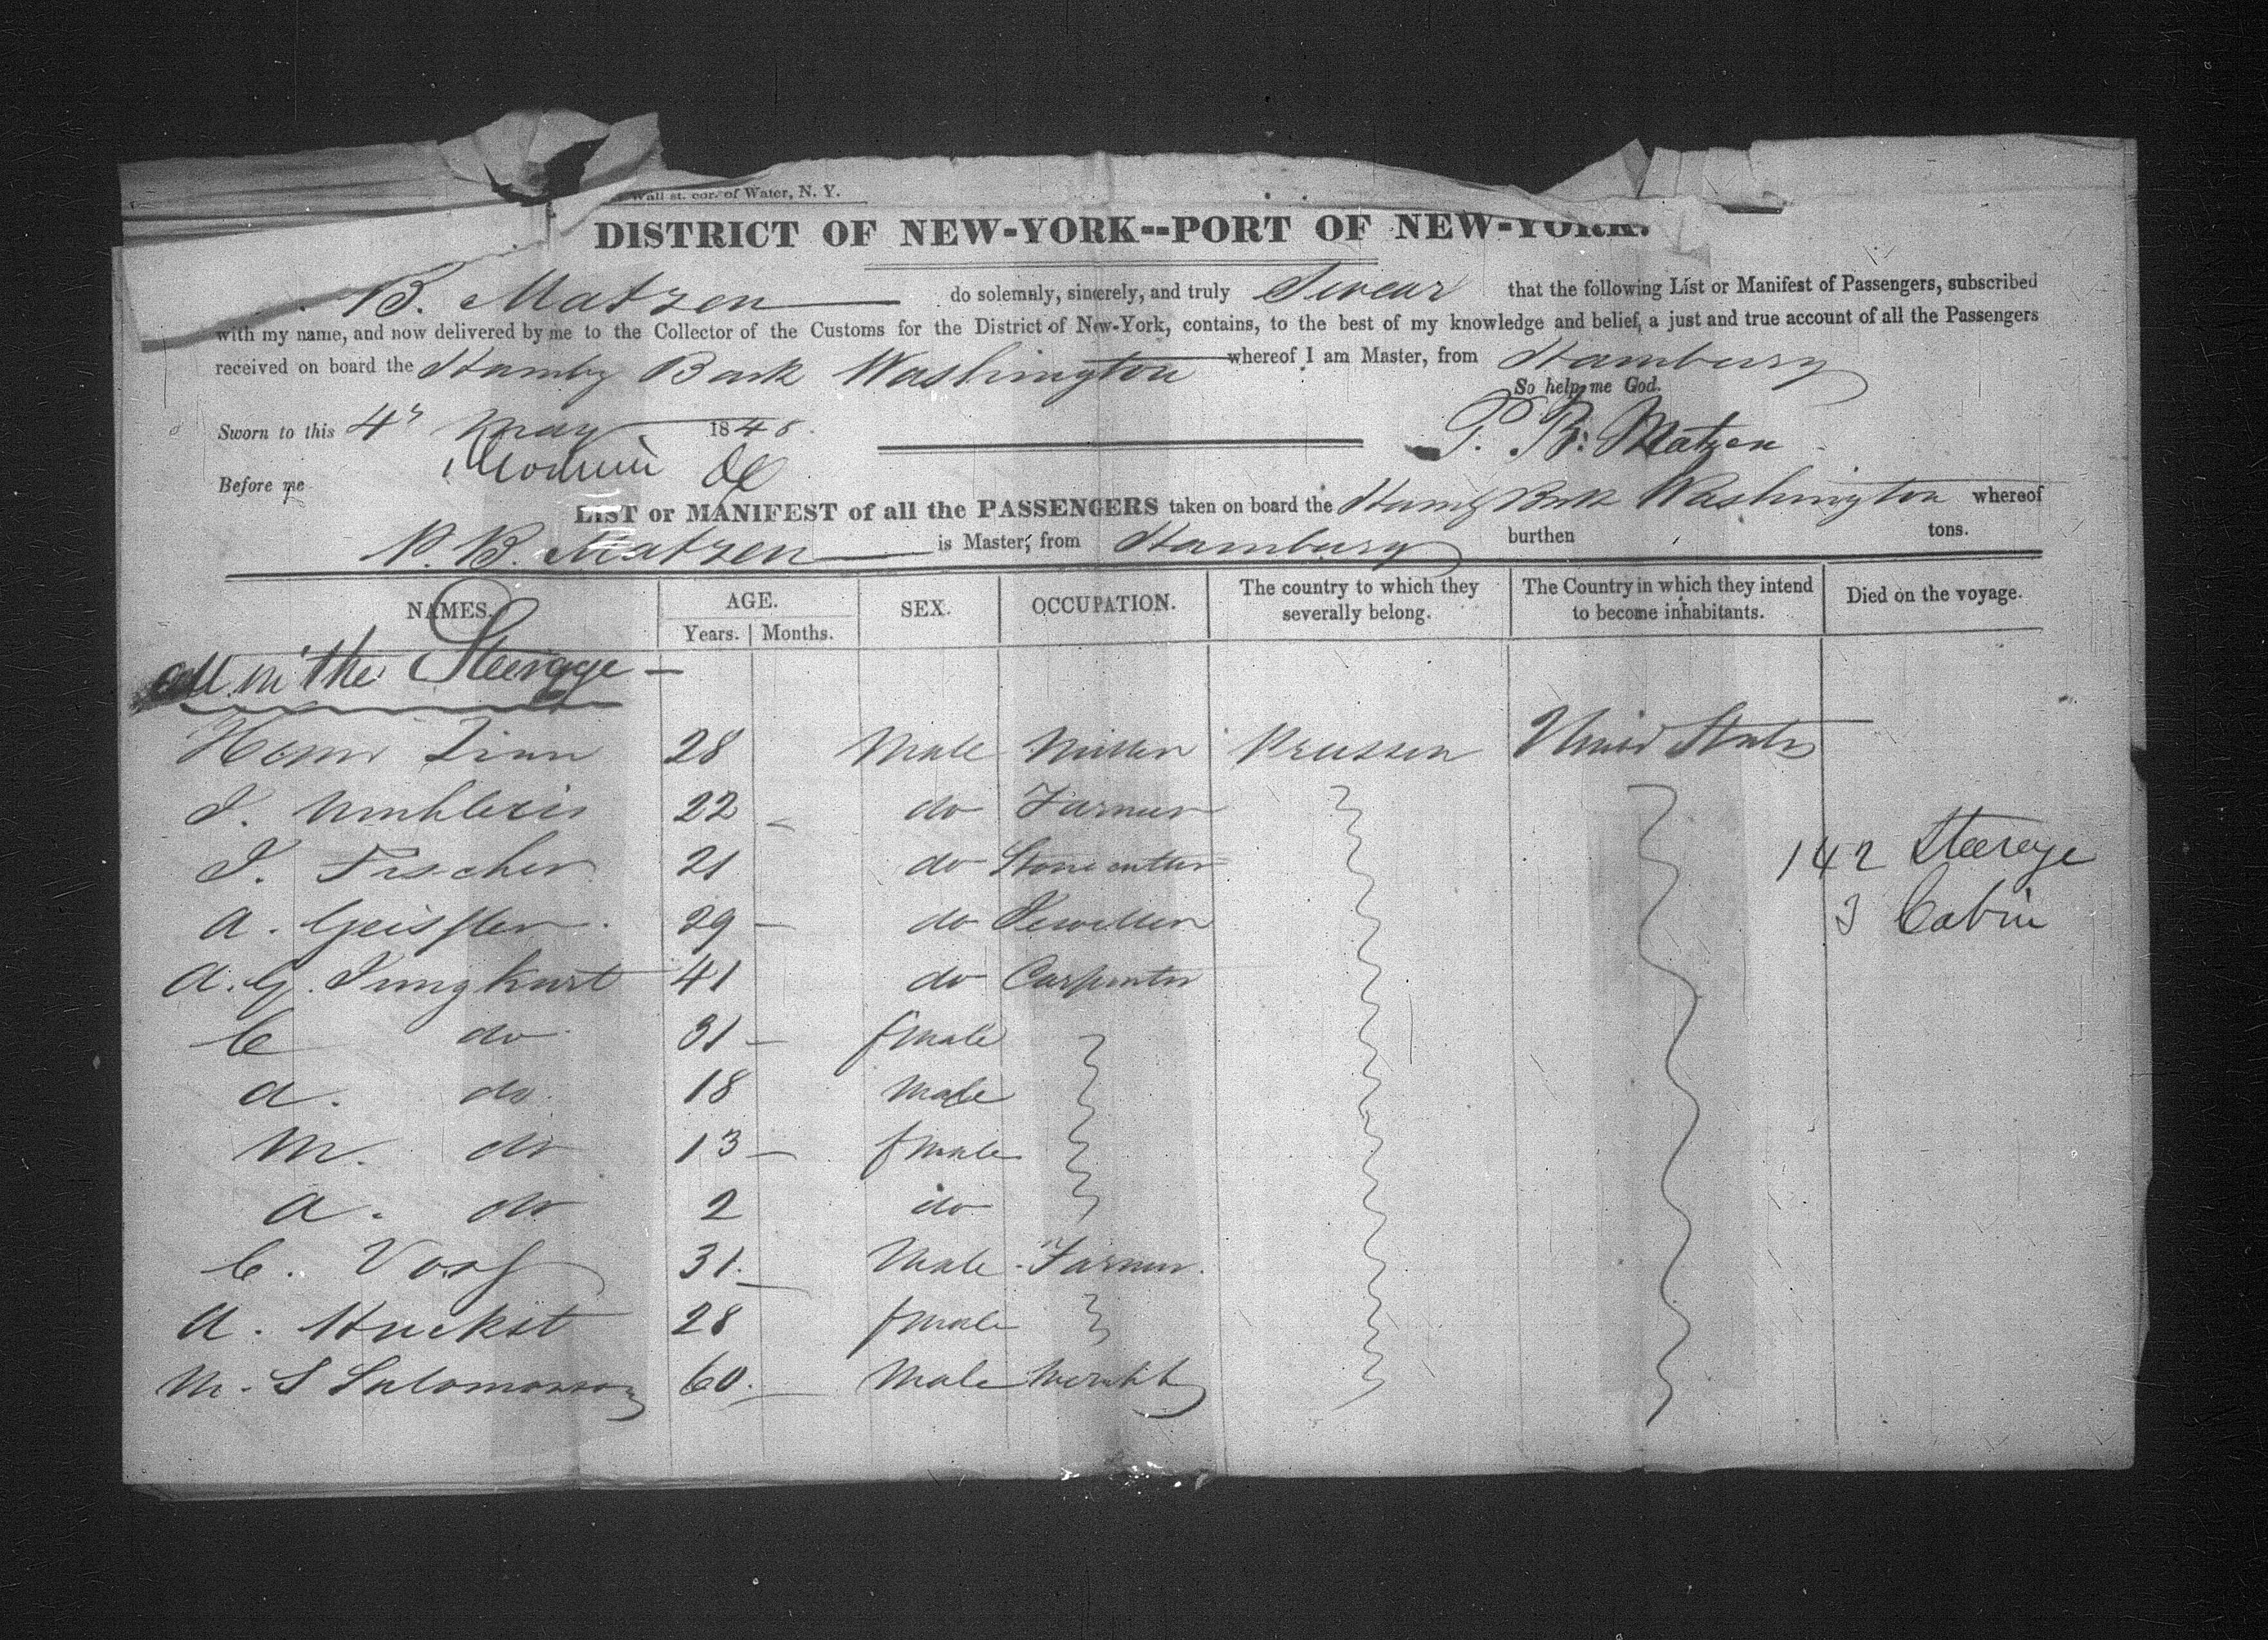 Wall st. cor. of Water, N. Y.
DISTRICT OF NEW-YORK--PORT OF NEW-YORK.
B. Matzen do solemnly, sincerely, and truly Swear that the following List or Manifest of Passengers, subscribed
with my name, and now delivered by me to the Collector of the Customs for the District of New-York, contains, to the best of my knowledge and belief, a just and true account of all the Passengers
received on board the Hambg Bark Washington whereof I am Master, from Hamburg
So help me God.
Sworn to this 4 May 1848. P. B. Matzen
Before me
LIST or MANIFEST of all the PASSENGERS taken on board the Hambg Bark Washington whereof
P. B. Matzen is Master, from Hamburg burthen tons.
NAMES. AGE. SEX. OCCUPATION. The country to which they severally belong. The Country in which they intend to become inhabitants. Died on the voyage.
Years. Months.
all in the Steerage -
28 Male Miller Preussen United States
J. 22 do Farmer
J. Fischer 21 do Stone cutter
142 Steerage
A. Geissler 29 do Jeweller
3 Cabin
A. G. Jungkurt 41 do Carpenter
C do 31 female
A. do 18 Male
M. do 13 female
A. do 2 do
C. 31. Male Farmer.
A. 28 female
M. S Salomonson 60. Male